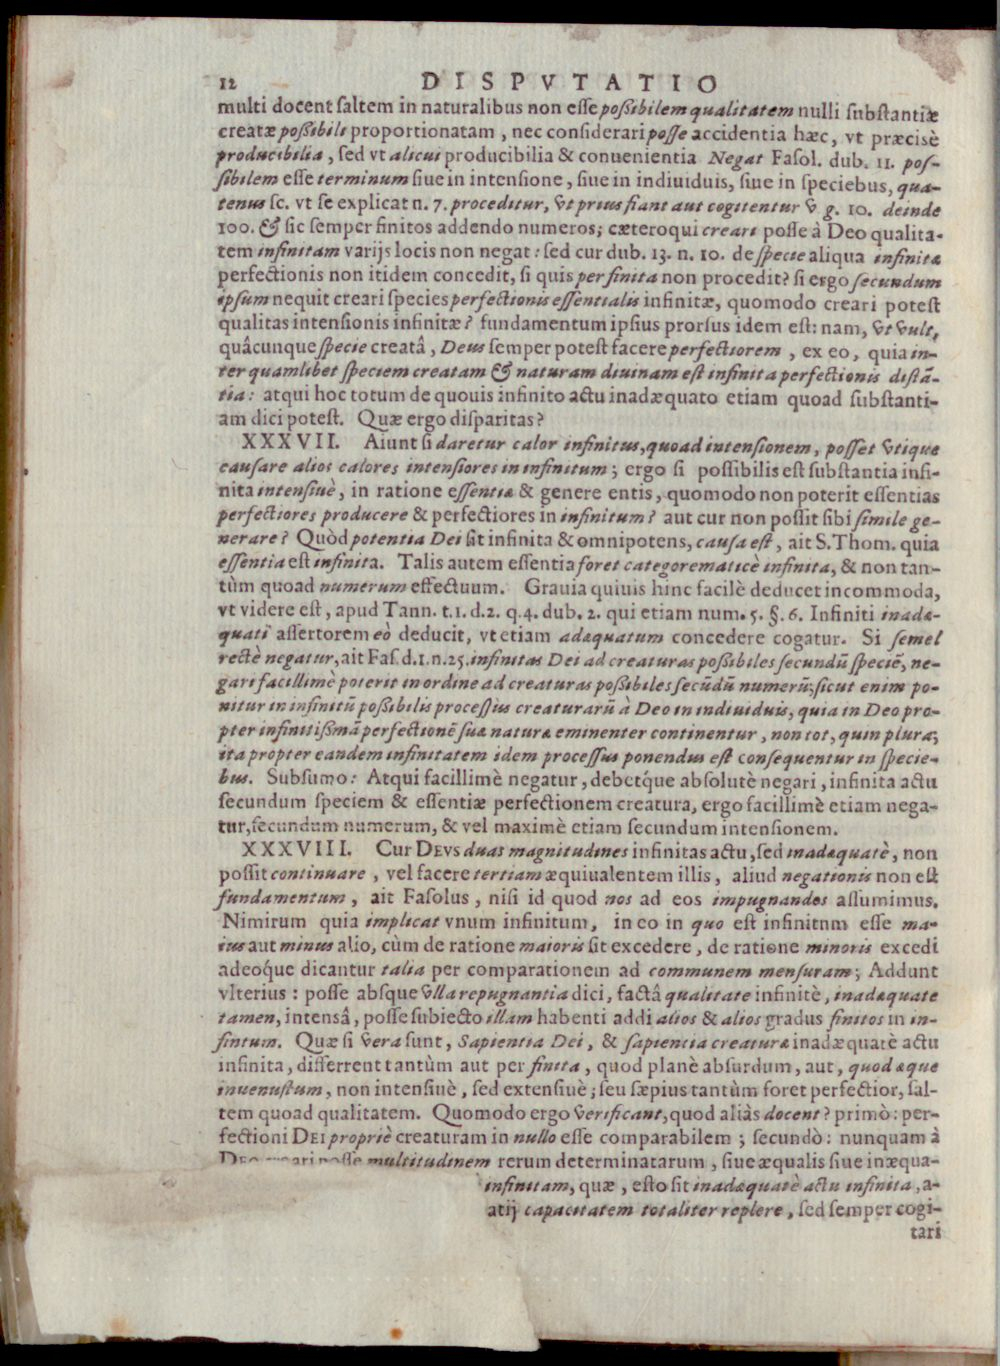 12 DISPVTATIO
multi docent saltem in naturalibus non esse possibilem qualitatem nulli substantiæ
creatæ possibili proportionatam, nec considerari posse accidentia hæc, vt præcisè
producibilia, sed vt alicui producibilia & conuenientia Negat Fasol. dub. 11. pos-
sibilem esse terminum siue in intensione, siue in indiuiduis, siue in speciebus, qua-
tenus sc. vt se explicat n. 7. proceditur, vt prius fiant aut cogitentur v g. 10. deinde
100. & sic semper finitos addendo numeros; cæteroqui creari posse à Deo qualita-
tem infinitam varijs locis non negat: sed cur dub. 13. n. 10. de specie aliqua infinitæ
perfectionis non itidem concedit, si quis per finita non procedit? si ergo secundum
ipsum nequit creari species perfectionis essentialis infinitæ, quomodo creari potest
qualitas intensionis infinitæ? fundamentum ipsius prorsus idem est: nam, vt vult,
quâcunque specie creatâ, Deus semper potest facere perfectiorem, ex eo, quia in-
ter quamlibet speciem creatam & naturam diuinam est infinita perfectionis distã-
tia: atqui hoc totum de quouis infinito actu inadæquato etiam quoad substanti-
am dici potest. Quæ ergo disparitas?
XXXVII. Aiunt si daretur calor infinitus, quoad intensionem, posset vtique
causare alios calores intensiores in infinitum; ergo si possibilis est substantia infi-
nita intensiuè, in ratione essentiæ & genere entis, quomodo non poterit essentias
perfectiores producere & perfectiores in infinitum? aut cur non possit sibi simile ge-
nerare? Quòd potentia Dei sit infinita & omnipotens, causa est, ait S. Thom. quia
essentia est infinita. Talis autem essentia foret categorematicè infinita, & non tan-
tùm quoad numerum effectuum. Grauia quiuis hinc facilè deducet incommoda,
vt videre est, apud Tann. t.1. d.2. q.4. dub. 2. qui etiam num. 5. §. 6. Infiniti inadæ-
quati assertorem eò deducit, vt etiam adæquatum concedere cogatur. Si semel
rectè negatur, ait Fas. d.1. n.25. infinitas Dei ad creaturas possibiles secundũ speciẽ, ne-
gari facillimè poterit in ordine ad creaturas possibiles secũdũ numerũ; sicut enim po-
nitur in infinitũ possibilis processus creaturarũ à Deo in indiuiduis, quia in Deo pro-
pter infinitissimã perfectionẽ suæ naturæ eminenter continentur, non tot, quin plura;
ita propter eandem infinitatem idem processus ponendus est consequentur in specie-
bus. Subsumo: Atqui facillimè negatur, debetq́ue absolutè negari, infinita actu
secundum speciem & essentiæ perfectionem creatura, ergo facillimè etiam nega-
tur, secundum numerum, & vel maximè etiam secundum intensionem.
XXXVIII. Cur DEVS duas magnitudines infinitas actu, sed inadæquatè, non
possit continuare, vel facere tertiam æquiualentem illis, aliud negationis non est
fundamentum, ait Fasolus, nisi id quod nos ad eos impugnandos assumimus.
Nimirum quia implicat vnum infinitum, in eo in quo est infinitnm esse ma-
ius aut minus alio, cùm de ratione maioris sit excedere, de ratione minoris excedi
adeoq́ue dicantur talia per comparationem ad communem mensuram; Addunt
vlterius: posse absque vlla repugnantia dici, factâ qualitate infinitè, inadæquate
tamen, intensâ, posse subiecto illam habenti addi alios & alios gradus finitos in in-
finitum. Quæ si vera sunt, Sapientia Dei, & sapientia creaturæ inadæquatè actu
infinita, differrent tantùm aut per finita, quod planè absurdum, aut, quod æque
inuenustum, non intensiuè, sed extensiuè; seu sæpius tantùm foret perfectior, sal-
tem quoad qualitatem. Quomodo ergo verificant, quod aliàs docent? primò: per-
fectioni DEI propriè creaturam in nullo esse comparabilem; secundò: nunquam à
DEO creari posse multitudinem rerum determinatarum, siue æqualis siue inæqua-
infinitam, quæ, esto sit inadæquatè actu infinita, a-
atij capacitatem totaliter replere, sed semper cogi-
tari